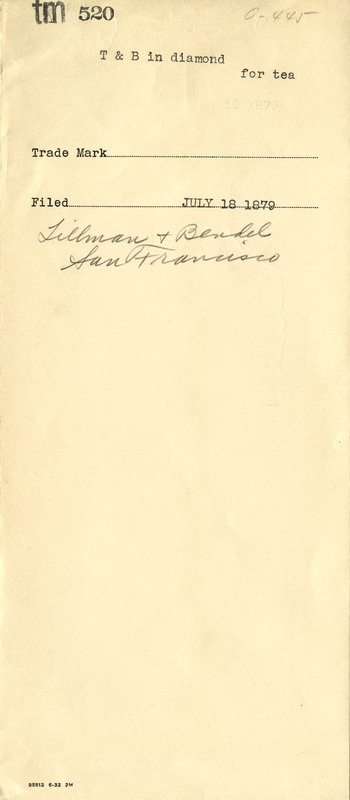 tm 520
0-445
T & B in diamond
for tea
Trade Mark
Filed JULY 18 1879
Tillman & Bendel
San Francisco
95812 6-32 2M